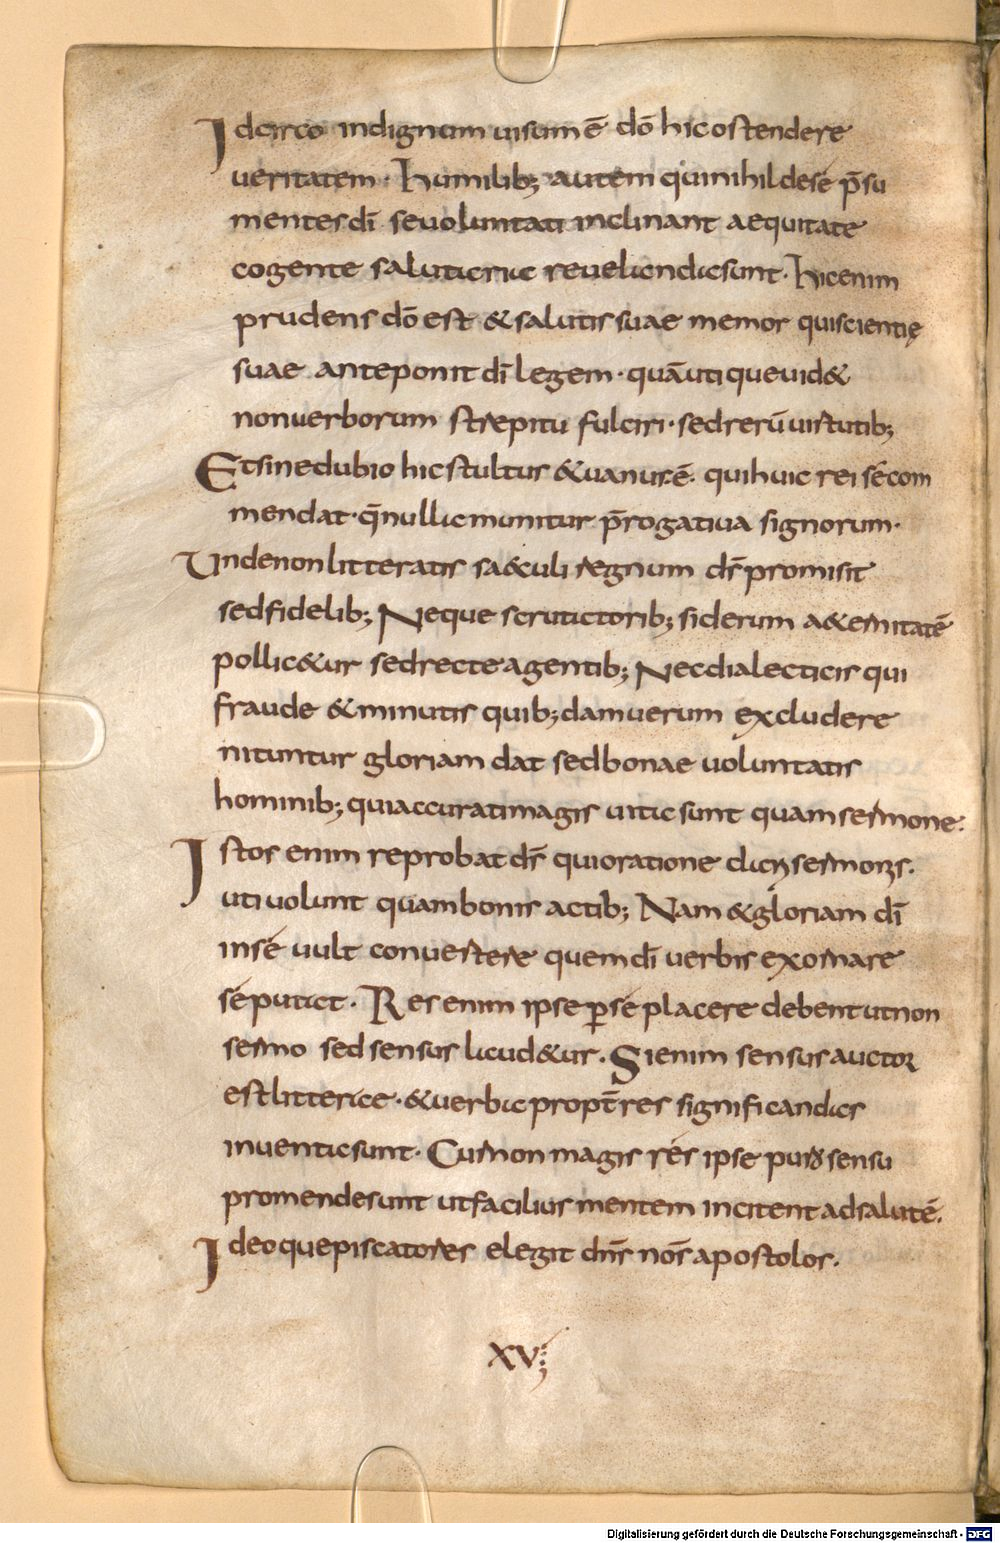 Idcirco indignum uisum ē dō hic ostendere
ueritatem · humilib; autem qui nihil de sé p̄su
mentes dī se uoluntati inclinant aequitate
cogente salutaria reuelanda sunt · hic enim
prudens dō est & salutis suae memor qui scientię
suae anteponit dī legem · quā uti que uid&
non uerborum strepitu fulciri · sed rerū uirtutib;
Et sine dubio hic stultus & uanus ē · qui huic rei sé com
mendat · q̄ nulla munitur p̄rogatiua signorum ·
Unde non litteratis sa&culi regnum ds̄ promisit
sed fidelib; Neque scrutatorib; siderum a&ernitatē
pollic&ur sed recte agentib; Nec dialecticis qui
fraude & minutis quib;dam uerum excludere
nituntur gloriam dat sed bonae uoluntatis
hominib; qui accurati magis uita sunt quam sermone ·
Istos enim reprobat ds̄ qui oratione sermonis ·
uti uolunt quam bonis actib; Nam & gloriam dī
in sé uult conuertere quem dī uerbis exornare
sé putat · Res enim ipse per sé placere debent ut non
sermo sed sensus laud&ur · Si enim sensus auctor
est litterae · & uerba propt̄ res significandas
inuenta sunt · Cur non magis rés ipse puro sensu
promende sunt ut facilius mentem incitent ad salutē ·
Ideoque piscatores elegit dn̄s nos̄ apostolos ·
XV;
Digitalisierung gefördert durch die Deutsche Forschungsgemeinschaft - DFG